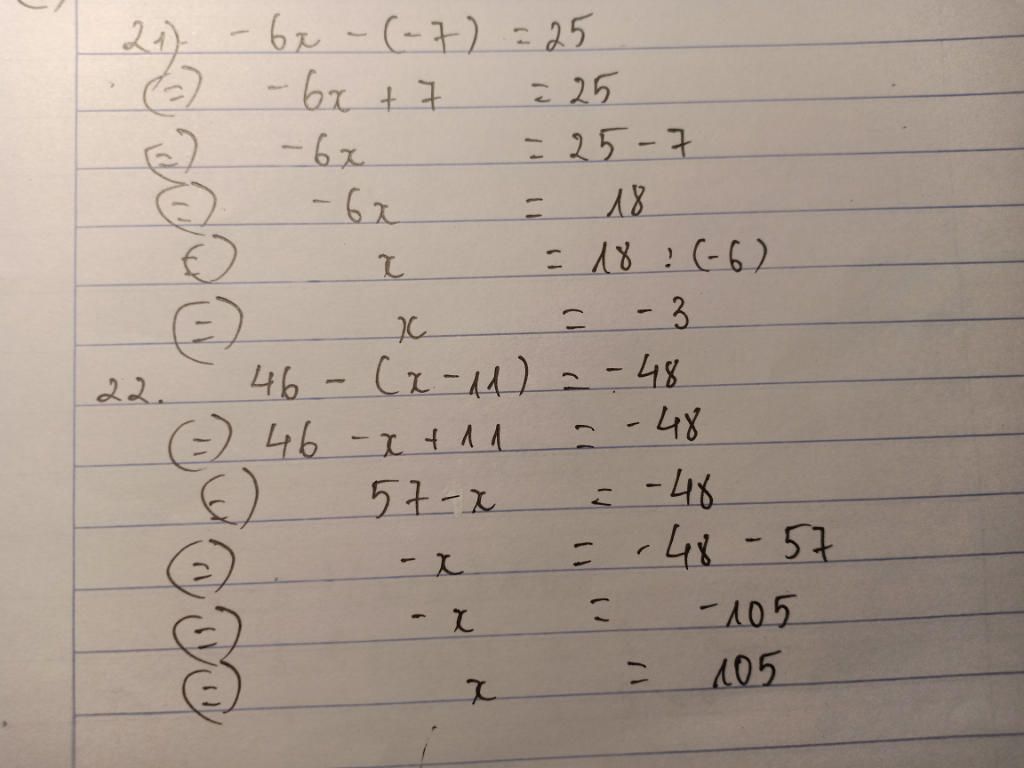 21) -6x - (-7) = 25
(=) -6x + 7 = 25
(=) -6x = 25 - 7
(=) -6x = 18
(=) x = 18 : (-6)
(=) x = -3
22. 46 - (x - 11) = -48
(=) 46 - x + 11 = -48
(=) 57 - x = -48
(=) -x = -48 - 57
(=) -x = -105
(=) x = 105